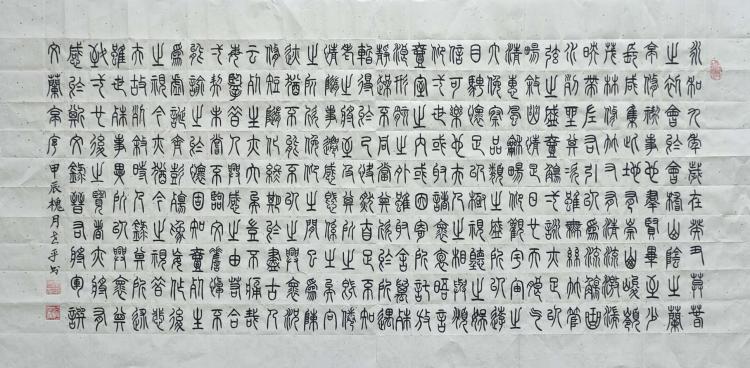 永和九年歲在癸丑莫春
之初會于會稽山陰之蘭
亭修禊事也群賢畢至少
長咸集此地有崇山峻領
茂林修竹又有清流激湍
映帶左右引以為流觴曲
水列坐其次雖無絲竹管
弦之盛一觴一詠亦足以
暢敘幽情是日也天朗氣
清惠風和暢仰觀宇宙之
大俯察品類之盛所以遊
目騁懷足以極視聽之娛
信可樂也夫人之相與俯
仰一世或取諸懷抱悟言
一室之內或因寄所託放
浪形骸之外雖趣舍萬殊
靜躁不同當其欣於所遇
暫得於己快然自足不知
老之將至及其所之既倦
情隨事遷感慨係之矣向
之所欣俛仰之間以為陳
迹猶不能不以之興懷況
修短隨化終期於盡古人
云死生亦大矣豈不痛哉
每覽昔人興感之由若合
一契未嘗不臨文嗟悼不
能喻之於懷固知一死生
為虛誕齊彭殤為妄作後
之視今亦猶今之視昔悲
夫故列敘時人錄其所述
雖世殊事異所以興懷其
致一也後之覽者亦將有
感於斯文錄晉右將軍譔
文蘭亭序 甲辰槐月